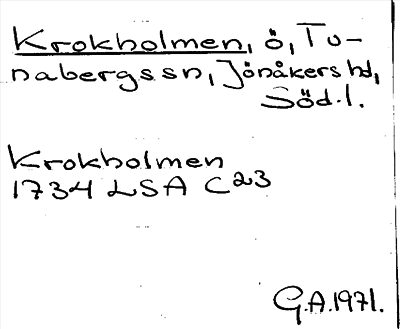 Krokholmen, ö, Tu-
nabergssn, Jönåkers hd,
Söd.l.
Krokholmen
1734 LSA C23
G.A. 1971.